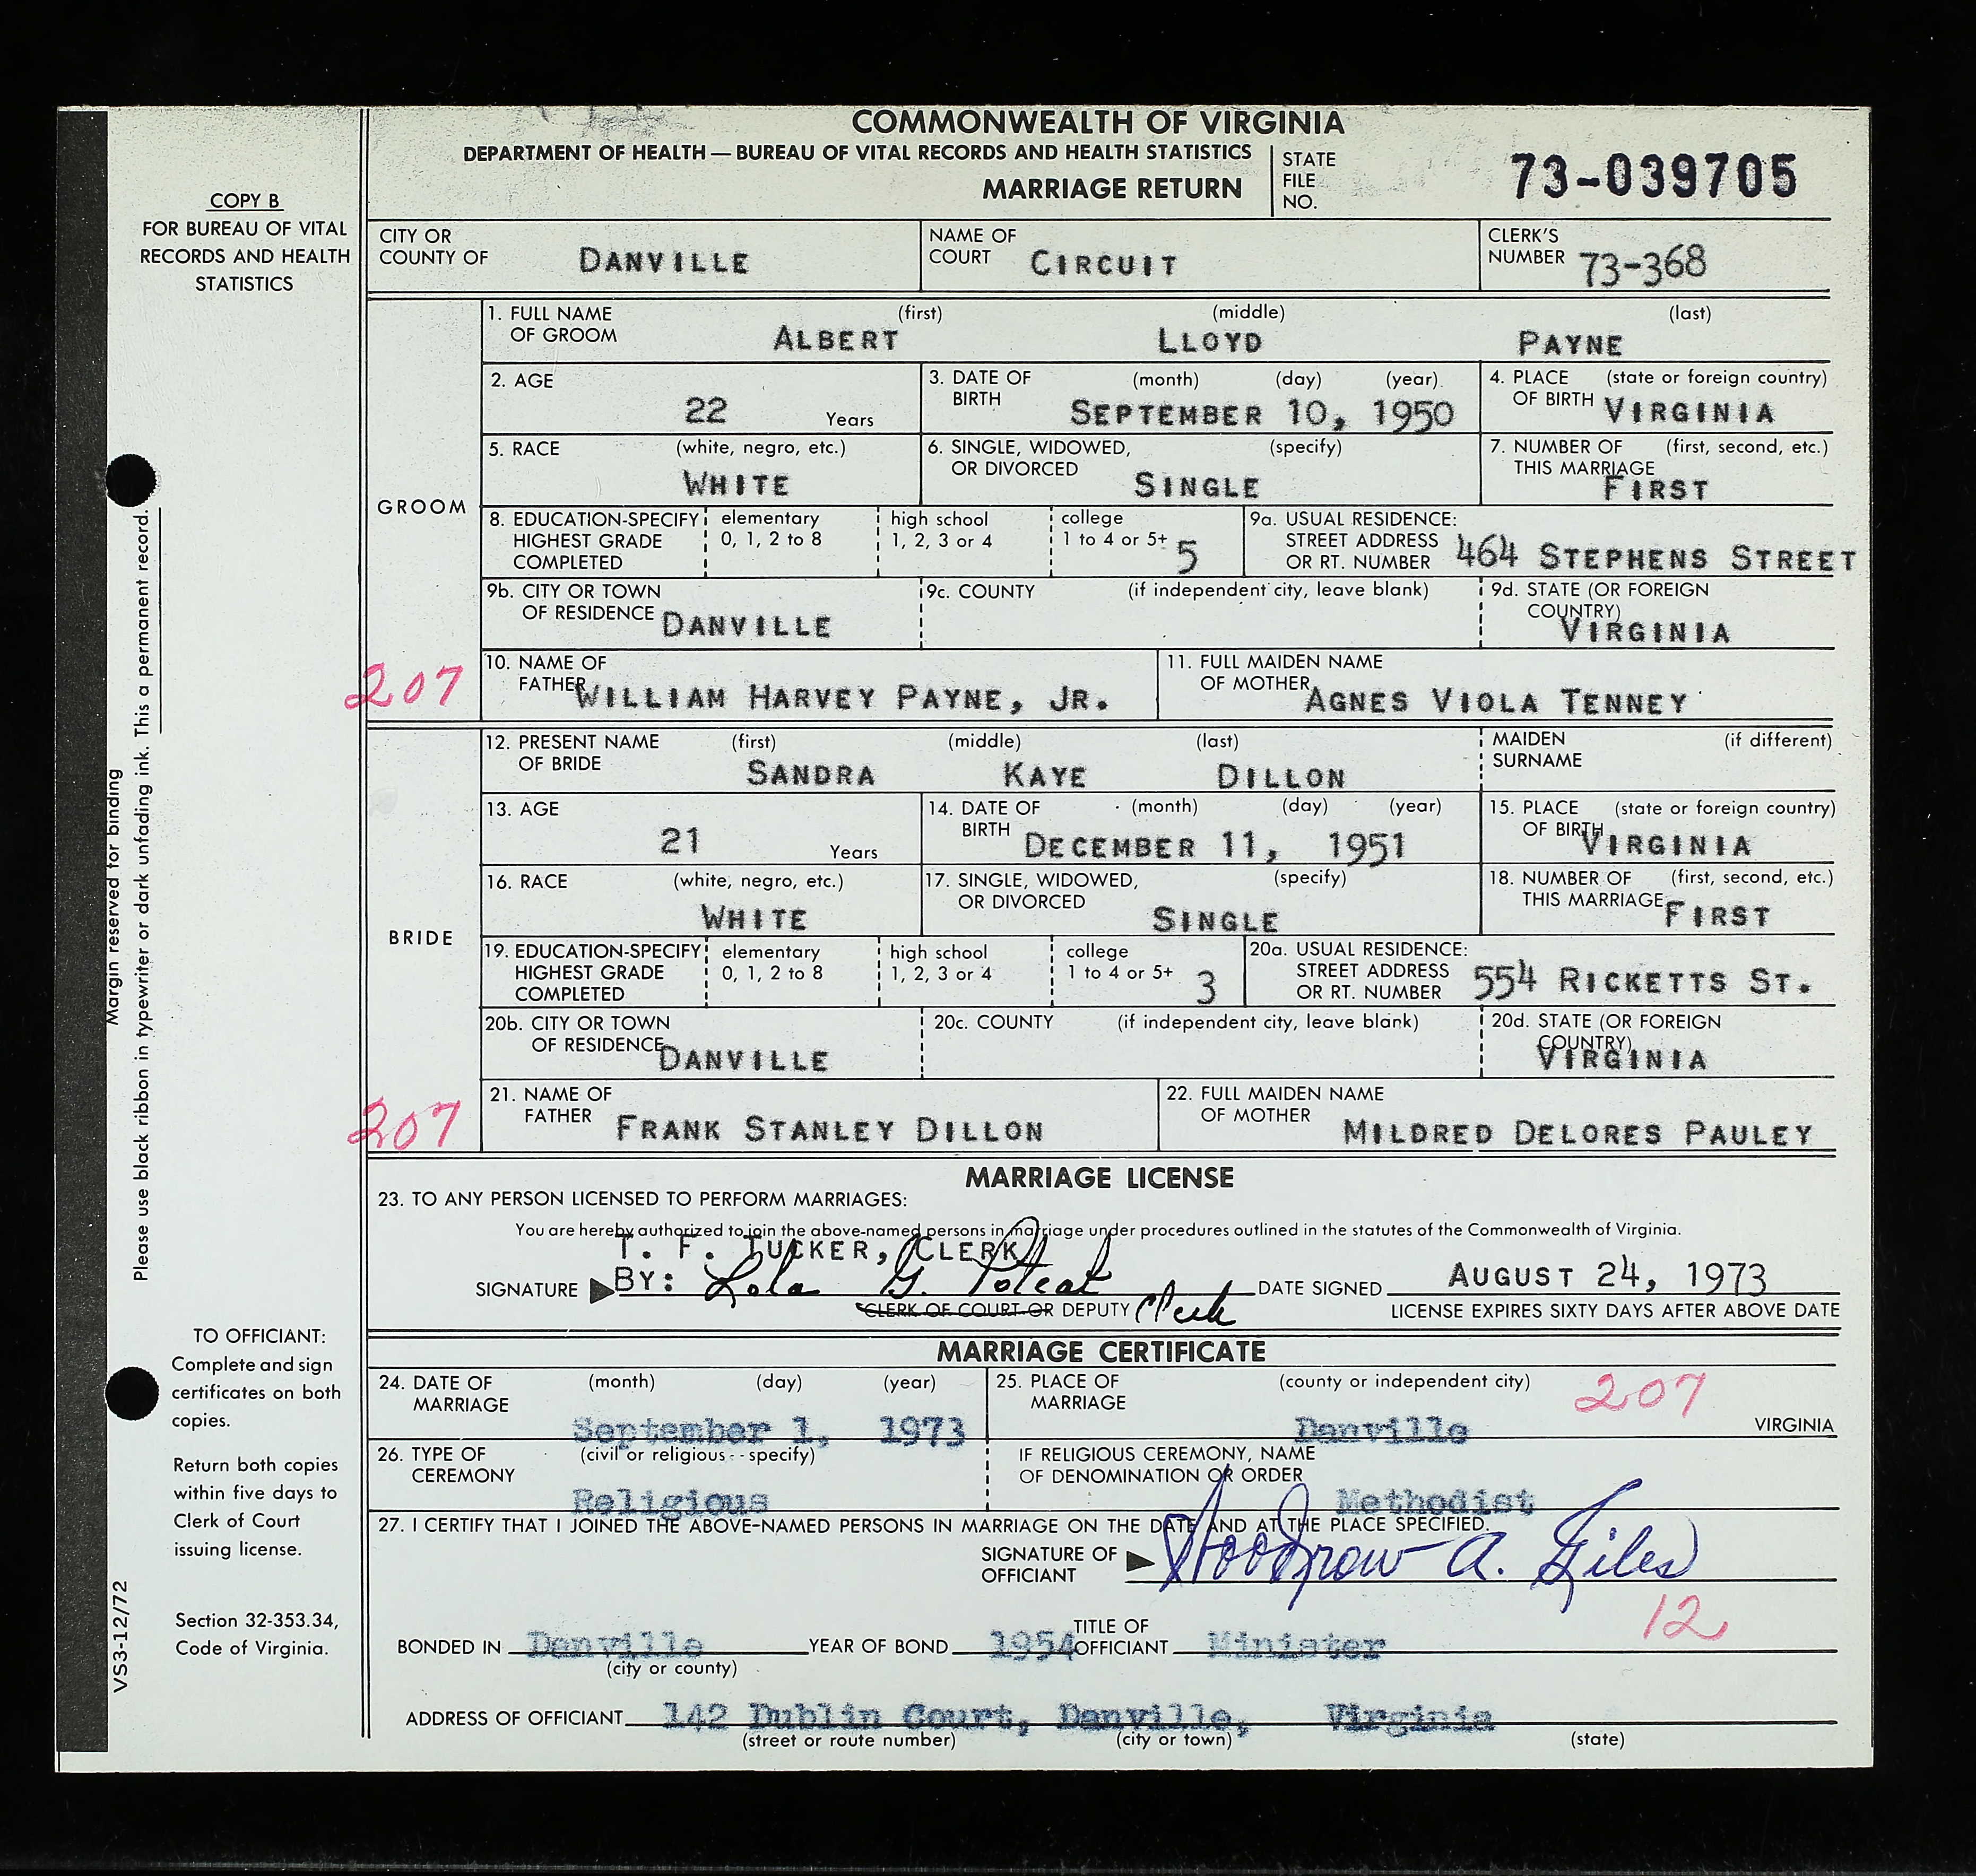 COMMONWEALTH OF VIRGINIA
DEPARTMENT OF HEALTH — BUREAU OF VITAL RECORDS AND HEALTH STATISTICS
MARRIAGE RETURN
STATE FILE NO. 73-039705
COPY B
FOR BUREAU OF VITAL
RECORDS AND HEALTH
STATISTICS
CITY OR COUNTY OF DANVILLE
NAME OF COURT CIRCUIT
CLERK'S NUMBER 73-368
GROOM
1. FULL NAME OF GROOM (first) (middle) (last)
ALBERT LLOYD PAYNE
2. AGE 22 Years
3. DATE OF BIRTH (month) (day) (year)
SEPTEMBER 10, 1950
4. PLACE OF BIRTH (state or foreign country)
VIRGINIA
5. RACE (white, negro, etc.)
WHITE
6. SINGLE, WIDOWED, OR DIVORCED (specify)
SINGLE
7. NUMBER OF THIS MARRIAGE (first, second, etc.)
FIRST
8. EDUCATION-SPECIFY HIGHEST GRADE COMPLETED
elementary 0, 1, 2 to 8
high school 1, 2, 3 or 4
college 1 to 4 or 5+ 5
9a. USUAL RESIDENCE: STREET ADDRESS OR RT. NUMBER
464 STEPHENS STREET
9b. CITY OR TOWN OF RESIDENCE DANVILLE
9c. COUNTY (if independent city, leave blank)
9d. STATE (OR FOREIGN COUNTRY)
VIRGINIA
207
10. NAME OF FATHER WILLIAM HARVEY PAYNE, JR.
11. FULL MAIDEN NAME OF MOTHER AGNES VIOLA TENNEY
BRIDE
12. PRESENT NAME OF BRIDE (first) (middle) (last)
SANDRA KAYE DILLON
MAIDEN SURNAME (if different)
13. AGE 21 Years
14. DATE OF BIRTH (month) (day) (year)
DECEMBER 11, 1951
15. PLACE OF BIRTH (state or foreign country)
VIRGINIA
16. RACE (white, negro, etc.)
WHITE
17. SINGLE, WIDOWED, OR DIVORCED (specify)
SINGLE
18. NUMBER OF THIS MARRIAGE (first, second, etc.)
FIRST
19. EDUCATION-SPECIFY HIGHEST GRADE COMPLETED
elementary 0, 1, 2 to 8
high school 1, 2, 3 or 4
college 1 to 4 or 5+ 3
20a. USUAL RESIDENCE: STREET ADDRESS OR RT. NUMBER
554 RICKETTS ST.
20b. CITY OR TOWN OF RESIDENCE DANVILLE
20c. COUNTY (if independent city, leave blank)
20d. STATE (OR FOREIGN COUNTRY)
VIRGINIA
207
21. NAME OF FATHER FRANK STANLEY DILLON
22. FULL MAIDEN NAME OF MOTHER MILDRED DELORES PAULEY
MARRIAGE LICENSE
23. TO ANY PERSON LICENSED TO PERFORM MARRIAGES:
You are hereby authorized to join the above-named persons in marriage under procedures outlined in the statutes of the Commonwealth of Virginia.
T. F. TUCKER, CLERK
SIGNATURE BY: Lola G. Poteat DATE SIGNED AUGUST 24, 1973
CLERK OF COURT OR DEPUTY Clerk
LICENSE EXPIRES SIXTY DAYS AFTER ABOVE DATE
MARRIAGE CERTIFICATE
24. DATE OF MARRIAGE (month) (day) (year)
September 1, 1973
25. PLACE OF MARRIAGE (county or independent city)
207
Danville VIRGINIA
26. TYPE OF CEREMONY (civil or religious - - specify)
Religious
IF RELIGIOUS CEREMONY, NAME OF DENOMINATION OR ORDER
Methodist
27. I CERTIFY THAT I JOINED THE ABOVE-NAMED PERSONS IN MARRIAGE ON THE DATE AND AT THE PLACE SPECIFIED.
SIGNATURE OF OFFICIANT Woodrow A. Giles
12
BONDED IN Danville YEAR OF BOND 1954 TITLE OF OFFICIANT Minister
(city or county)
ADDRESS OF OFFICIANT 142 Dublin Court, Danville, Virginia
(street or route number) (city or town) (state)
Margin reserved for binding
Please use black ribbon in typewriter or dark unfading ink. This a permanent record.
TO OFFICIANT:
Complete and sign
certificates on both
copies.
Return both copies
within five days to
Clerk of Court
issuing license.
Section 32-353.34,
Code of Virginia.
VS3-12/72